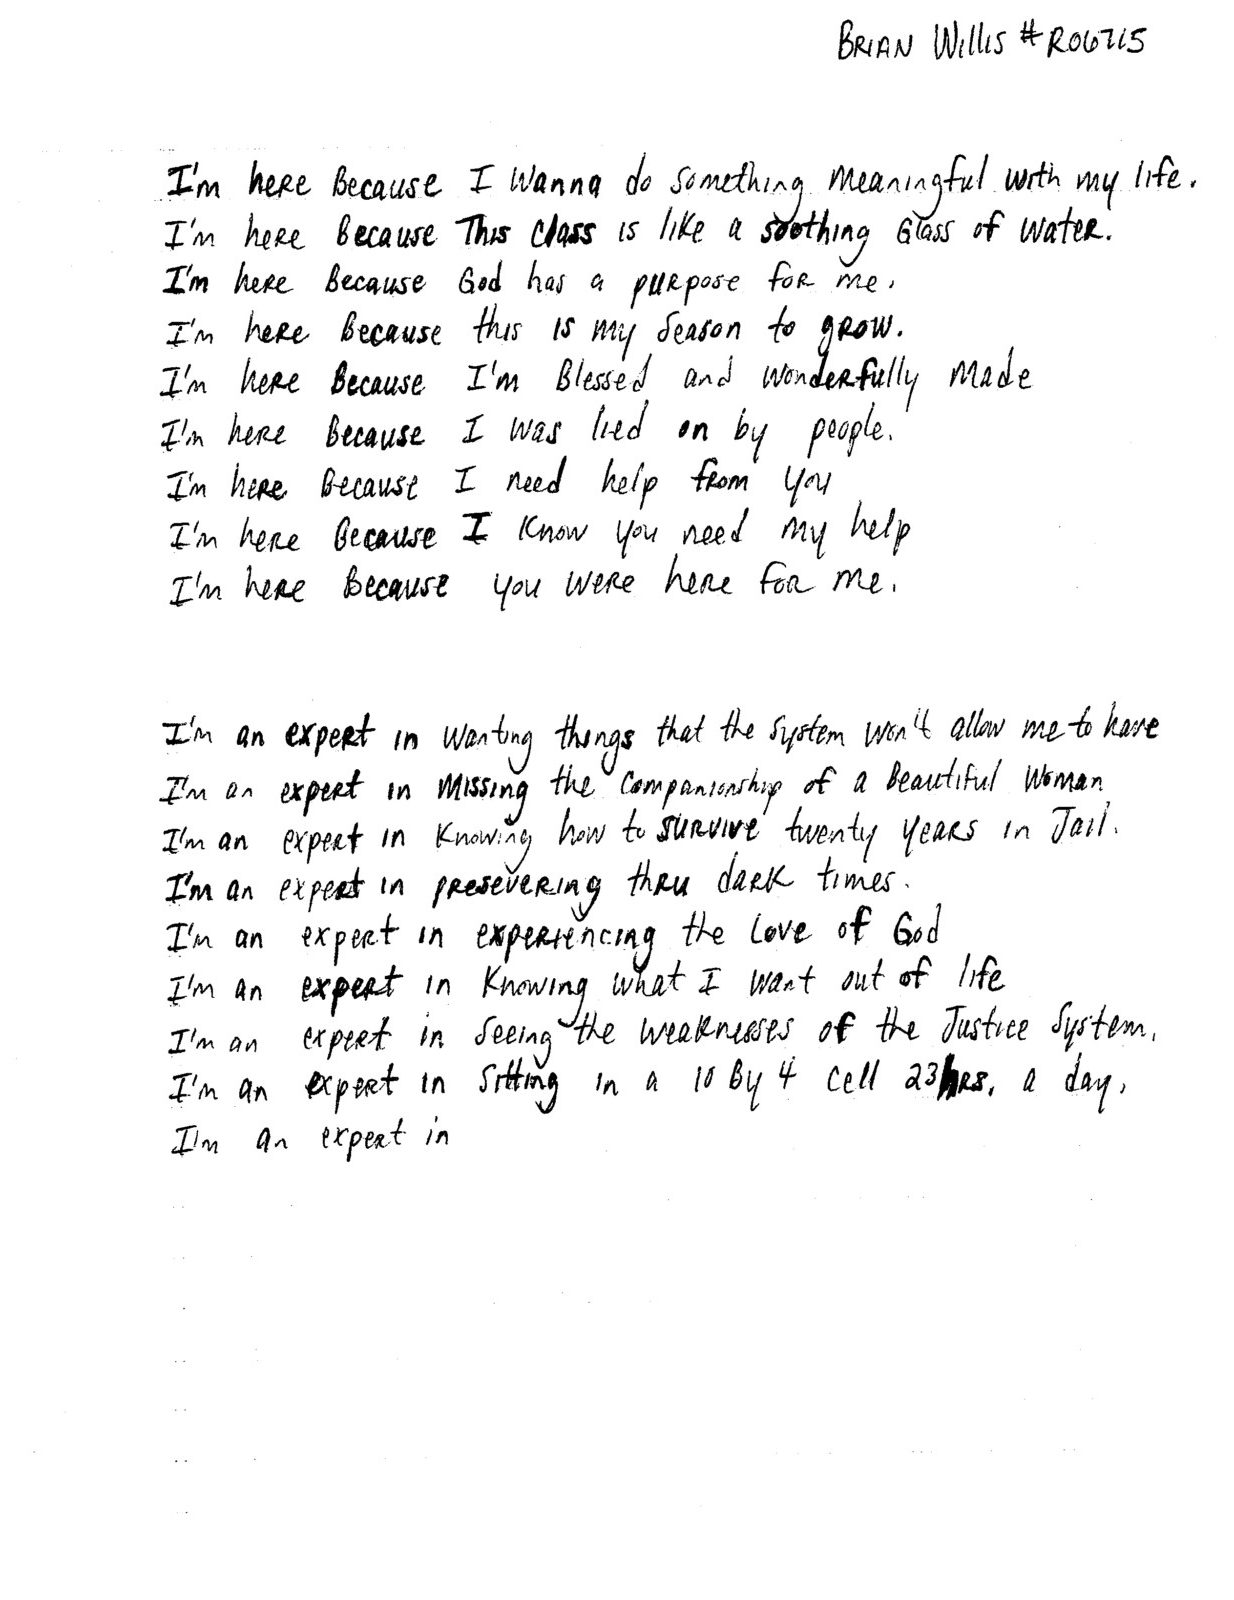 BRIAN Willis #R06715
I'm here Because I Wanna do something meaningful with my life.
I'm here Because This class is like a soothing Glass of water.
I'm here Because God has a purpose for me.
I'm here Because this is my season to grow.
I'm here Because I'm Blessed and wonderfully made
I'm here Because I was lied on by people.
I'm here Because I need help from you
I'm here Because I know you need my help
I'm here Because you were here for me.
I'm an expert in wanting things that the system won't allow me to have
I'm an expert in missing the companionship of a Beautiful woman
I'm an expert in knowing how to survive twenty years in Jail.
I'm an expert in presevering thru dark times.
I'm an expert in experiencing the love of God
I'm an expert in knowing what I want out of life
I'm an expert in seeing the weaknesses of the Justice system.
I'm an expert in sitting in a 10 By 4 cell 23hrs. a day,
I'm an expert in